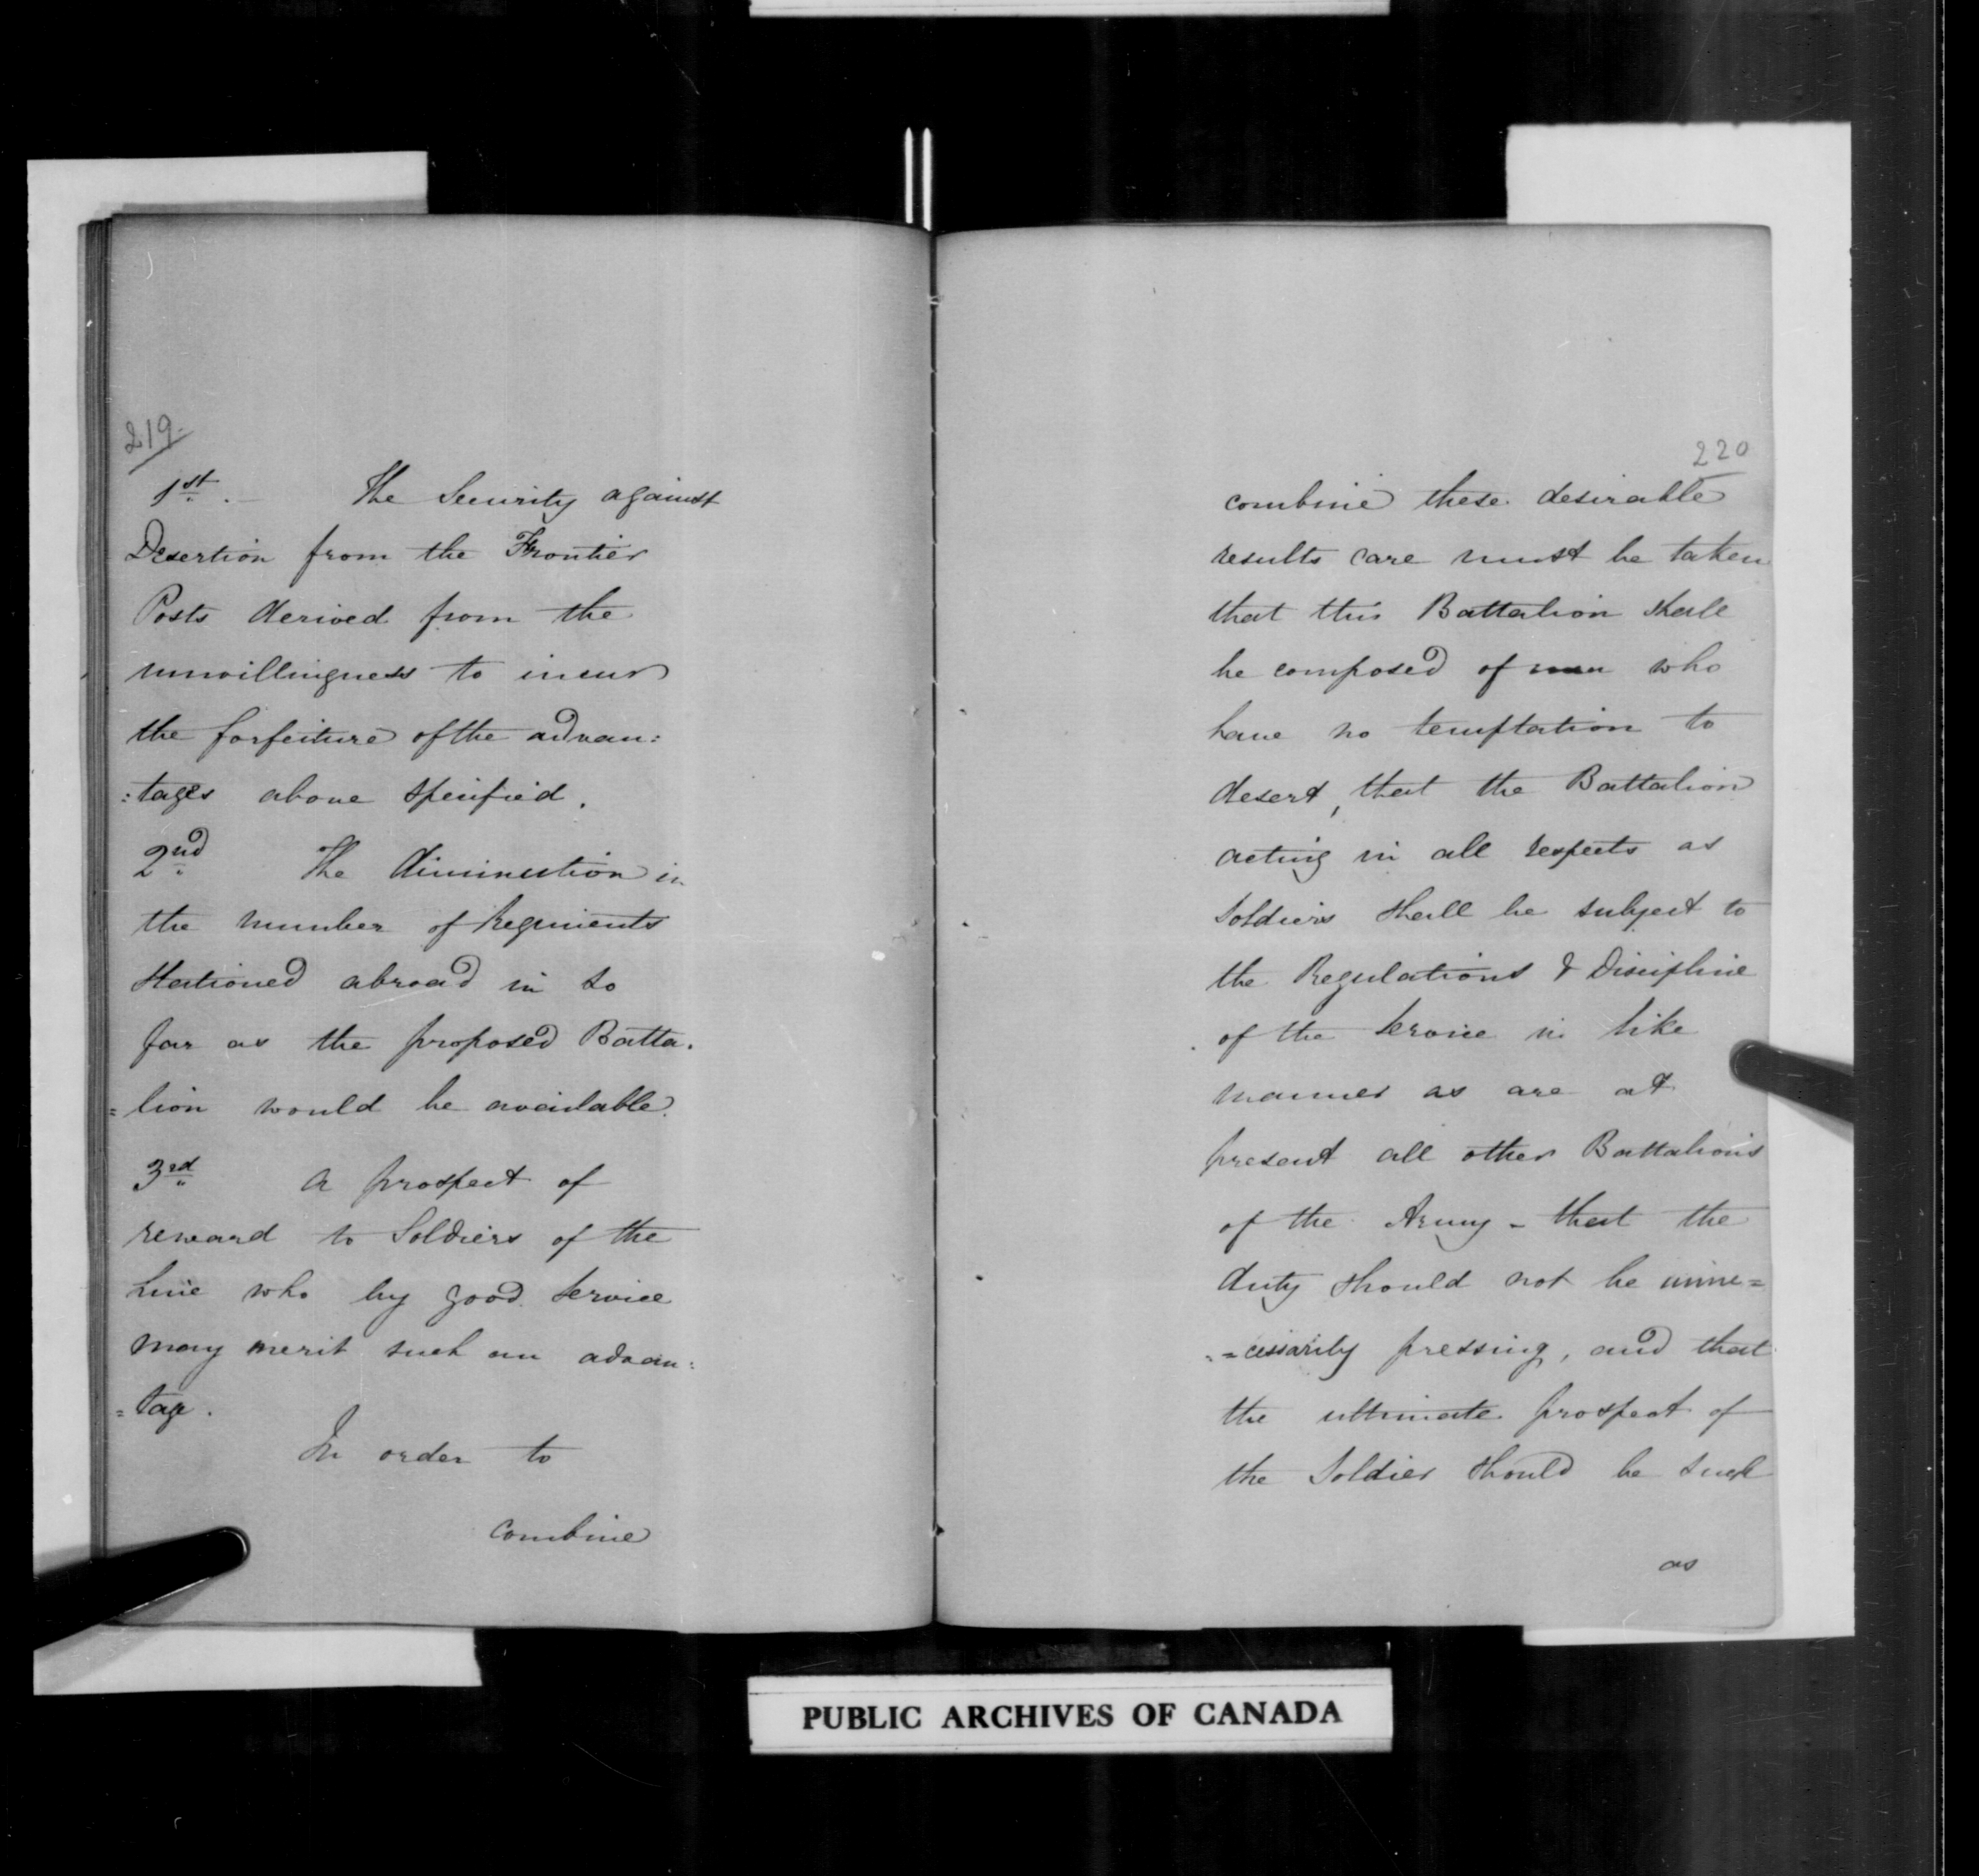 219
1st. — The Security against
Desertion from the Frontier
Posts derived from the
unwillingness to incur
the forfeiture of the advan:
:tages above specified.
2nd The diminution in
the number of Regiments
stationed abroad in so
far as the proposed Batta.
=lion would be available.
3rd A prospect of
reward to Soldiers of the
Line who by good service
may merit such an advan:
=tage.
In order to
combine
220
combine these desirable
results care must be taken
that this Battalion shall
be composed of men who
have no temptation to
desert, that the Battalion
acting in all respects as
Soldiers shall be subject to
the Regulations & Discipline
of the Service in like
manner as are at
present all other Battalions
of the Army - that the
duty should not be unne=
=cessarily pressing, and that
the ultimate prospect of
the Soldier should be such
as
PUBLIC ARCHIVES OF CANADA